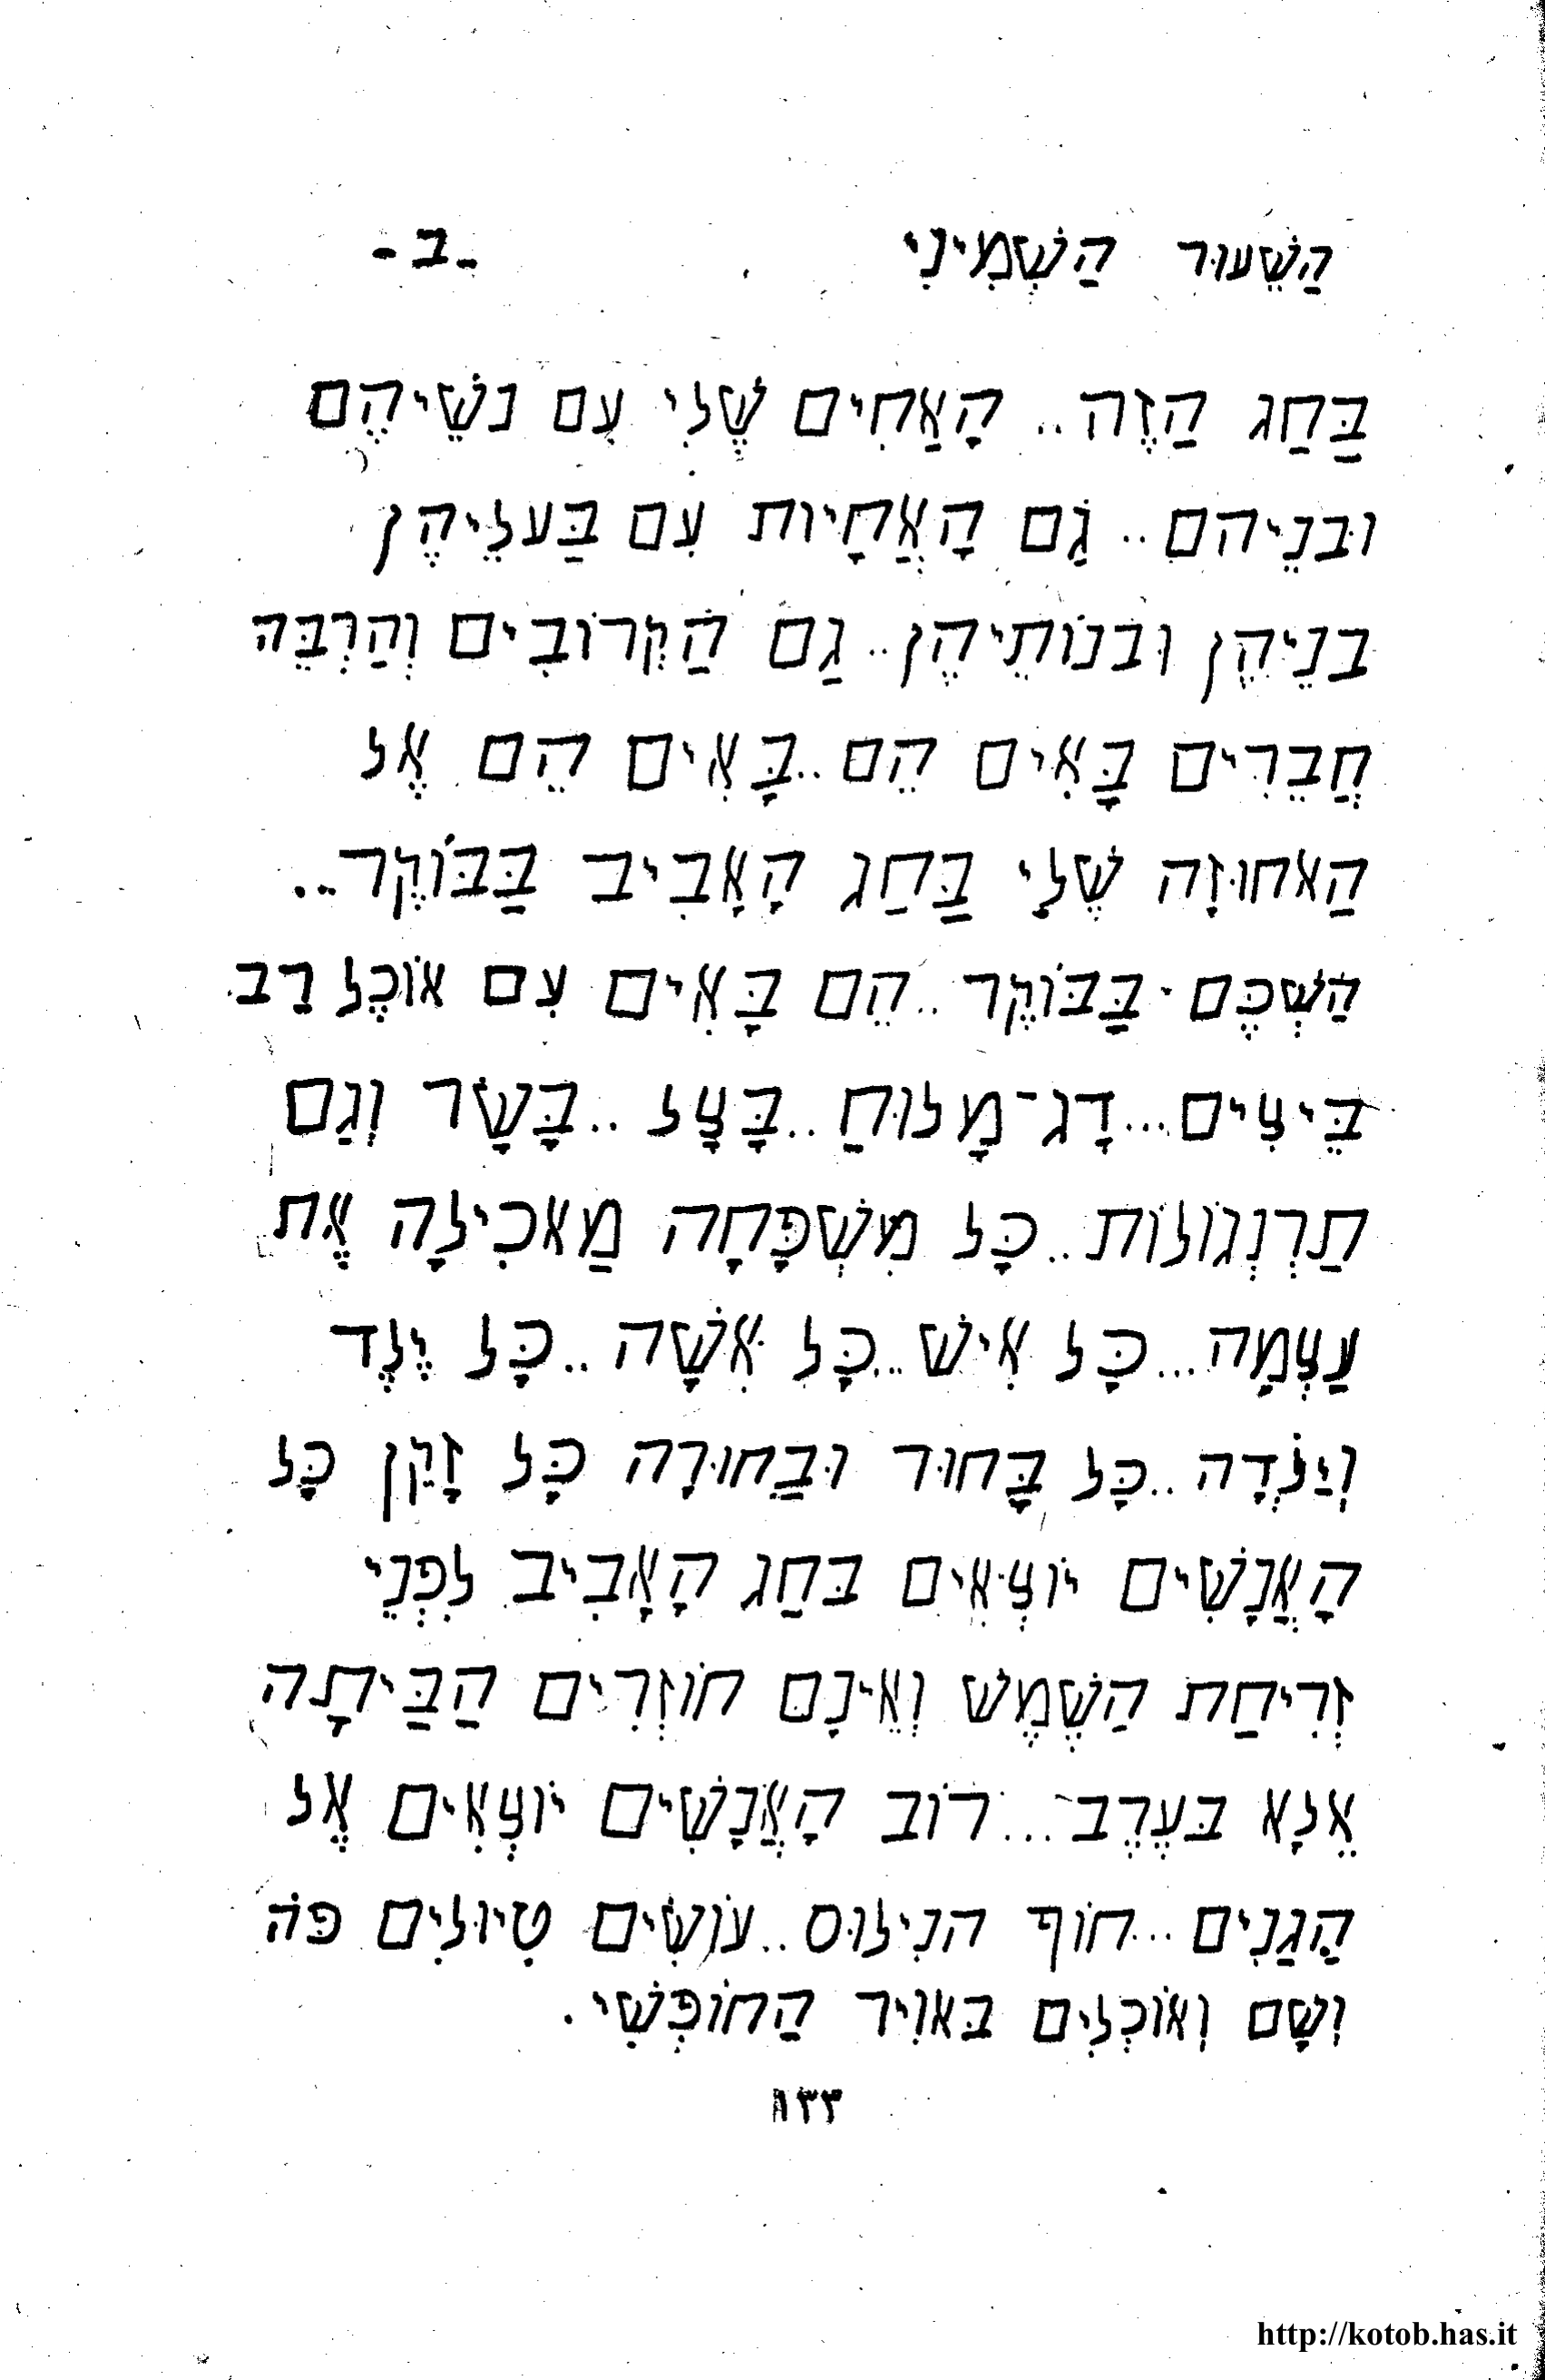 הַשֵׁעוּר הַשְׁמִינִי -ב-
בַּחַג הַזֶה.. הָאַחִים שֶׁלִי עִם נשֵׁיהֶם
וּבּנֵיהם.. גַם הָאֲחָיוֹת עִם בַּעלֵיהֶן
בנֵיהֶן וּבנוֹתֵיהֶן.. גַם הַקְרוֹבִים וְהַרְבֵּה
חֲבֵרִים בָּאִים הֵם..בָּאִים הֵם אֶל
הַאחוּזָה שֶׁלִי בַּחַג הָאָבִיב בַּבּוֹקֶר...
הַשְׁכֶּם בַּבּוֹקֶר..הֵם בָּאִים עִם אוֹכֶל רַב
בֵּיצִים...דָג-מָלוּחַ..בָּצָל..בָּשָׂר וְגַם
תַרְנְגוֹלוֹת..כָּל מִשְׁפָּחָה מַאכִילָה אֶת
עַצְמָה...כָּל אִישׁ...כָּל אִשָׁה..כָּל יֶלֶד
וְיַלְדָה..כָּל בָּחוּר וּבַחוּרָה כָּל זָקֵן כָּל
הָאֲנָשִׁים יוֹצְאִים בּחַג הָאָבִיב לִפְנֵי
זְרִיחַת הַשֶׁמֶשׁ וְאֵינָם חוֹזְרִים הַבַּיתָה
אֵלָא בּעֶרֶב...רוֹב הָאֲנָשִׁים יוֹצְאִים אֶל
הַגַנִים...חוֹף הנִילוּס..עוֹשִׂים טִיוּלִים פּה
וְשָׁם וְאוֹכְלִים בּאוִיר הַחוֹפְּשִׁי.
١٣٣
http://kotob.has.it